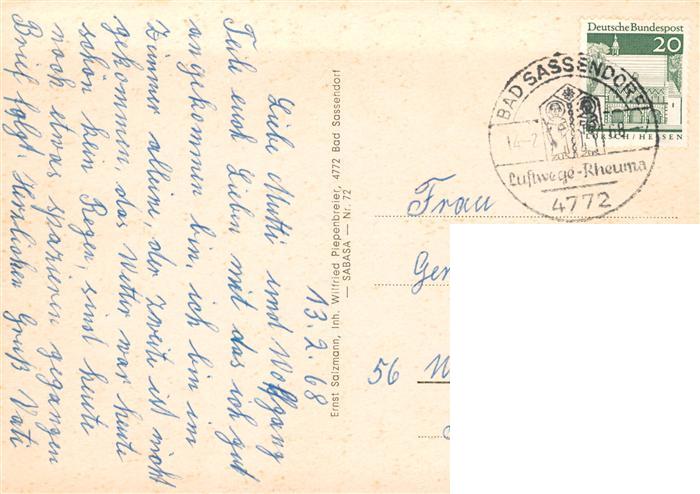 13.2.68
Liebe Mutti und Wolfgang
Teile euch Lieben mit das ich gut
angekommen bin, ich bin im
Zimmer alleine, der zweite ist nicht
gekommen, das Wetter war heute
schön kein Regen, sinst heute
noch etwas spazieren gegangen
Brief folgt. Herzlichen Gruß Vati
Ernst Salzmann, Inh. Wilfried Piepenbreier, 4772 Bad Sassendorf
— SABASA — Nr. 72
Deutsche Bundespost
20
LORSCH/HESSEN
BAD SASSENDORF
14-2
68
Luftwege-Rheuma
4772
Frau
Ger
56 W